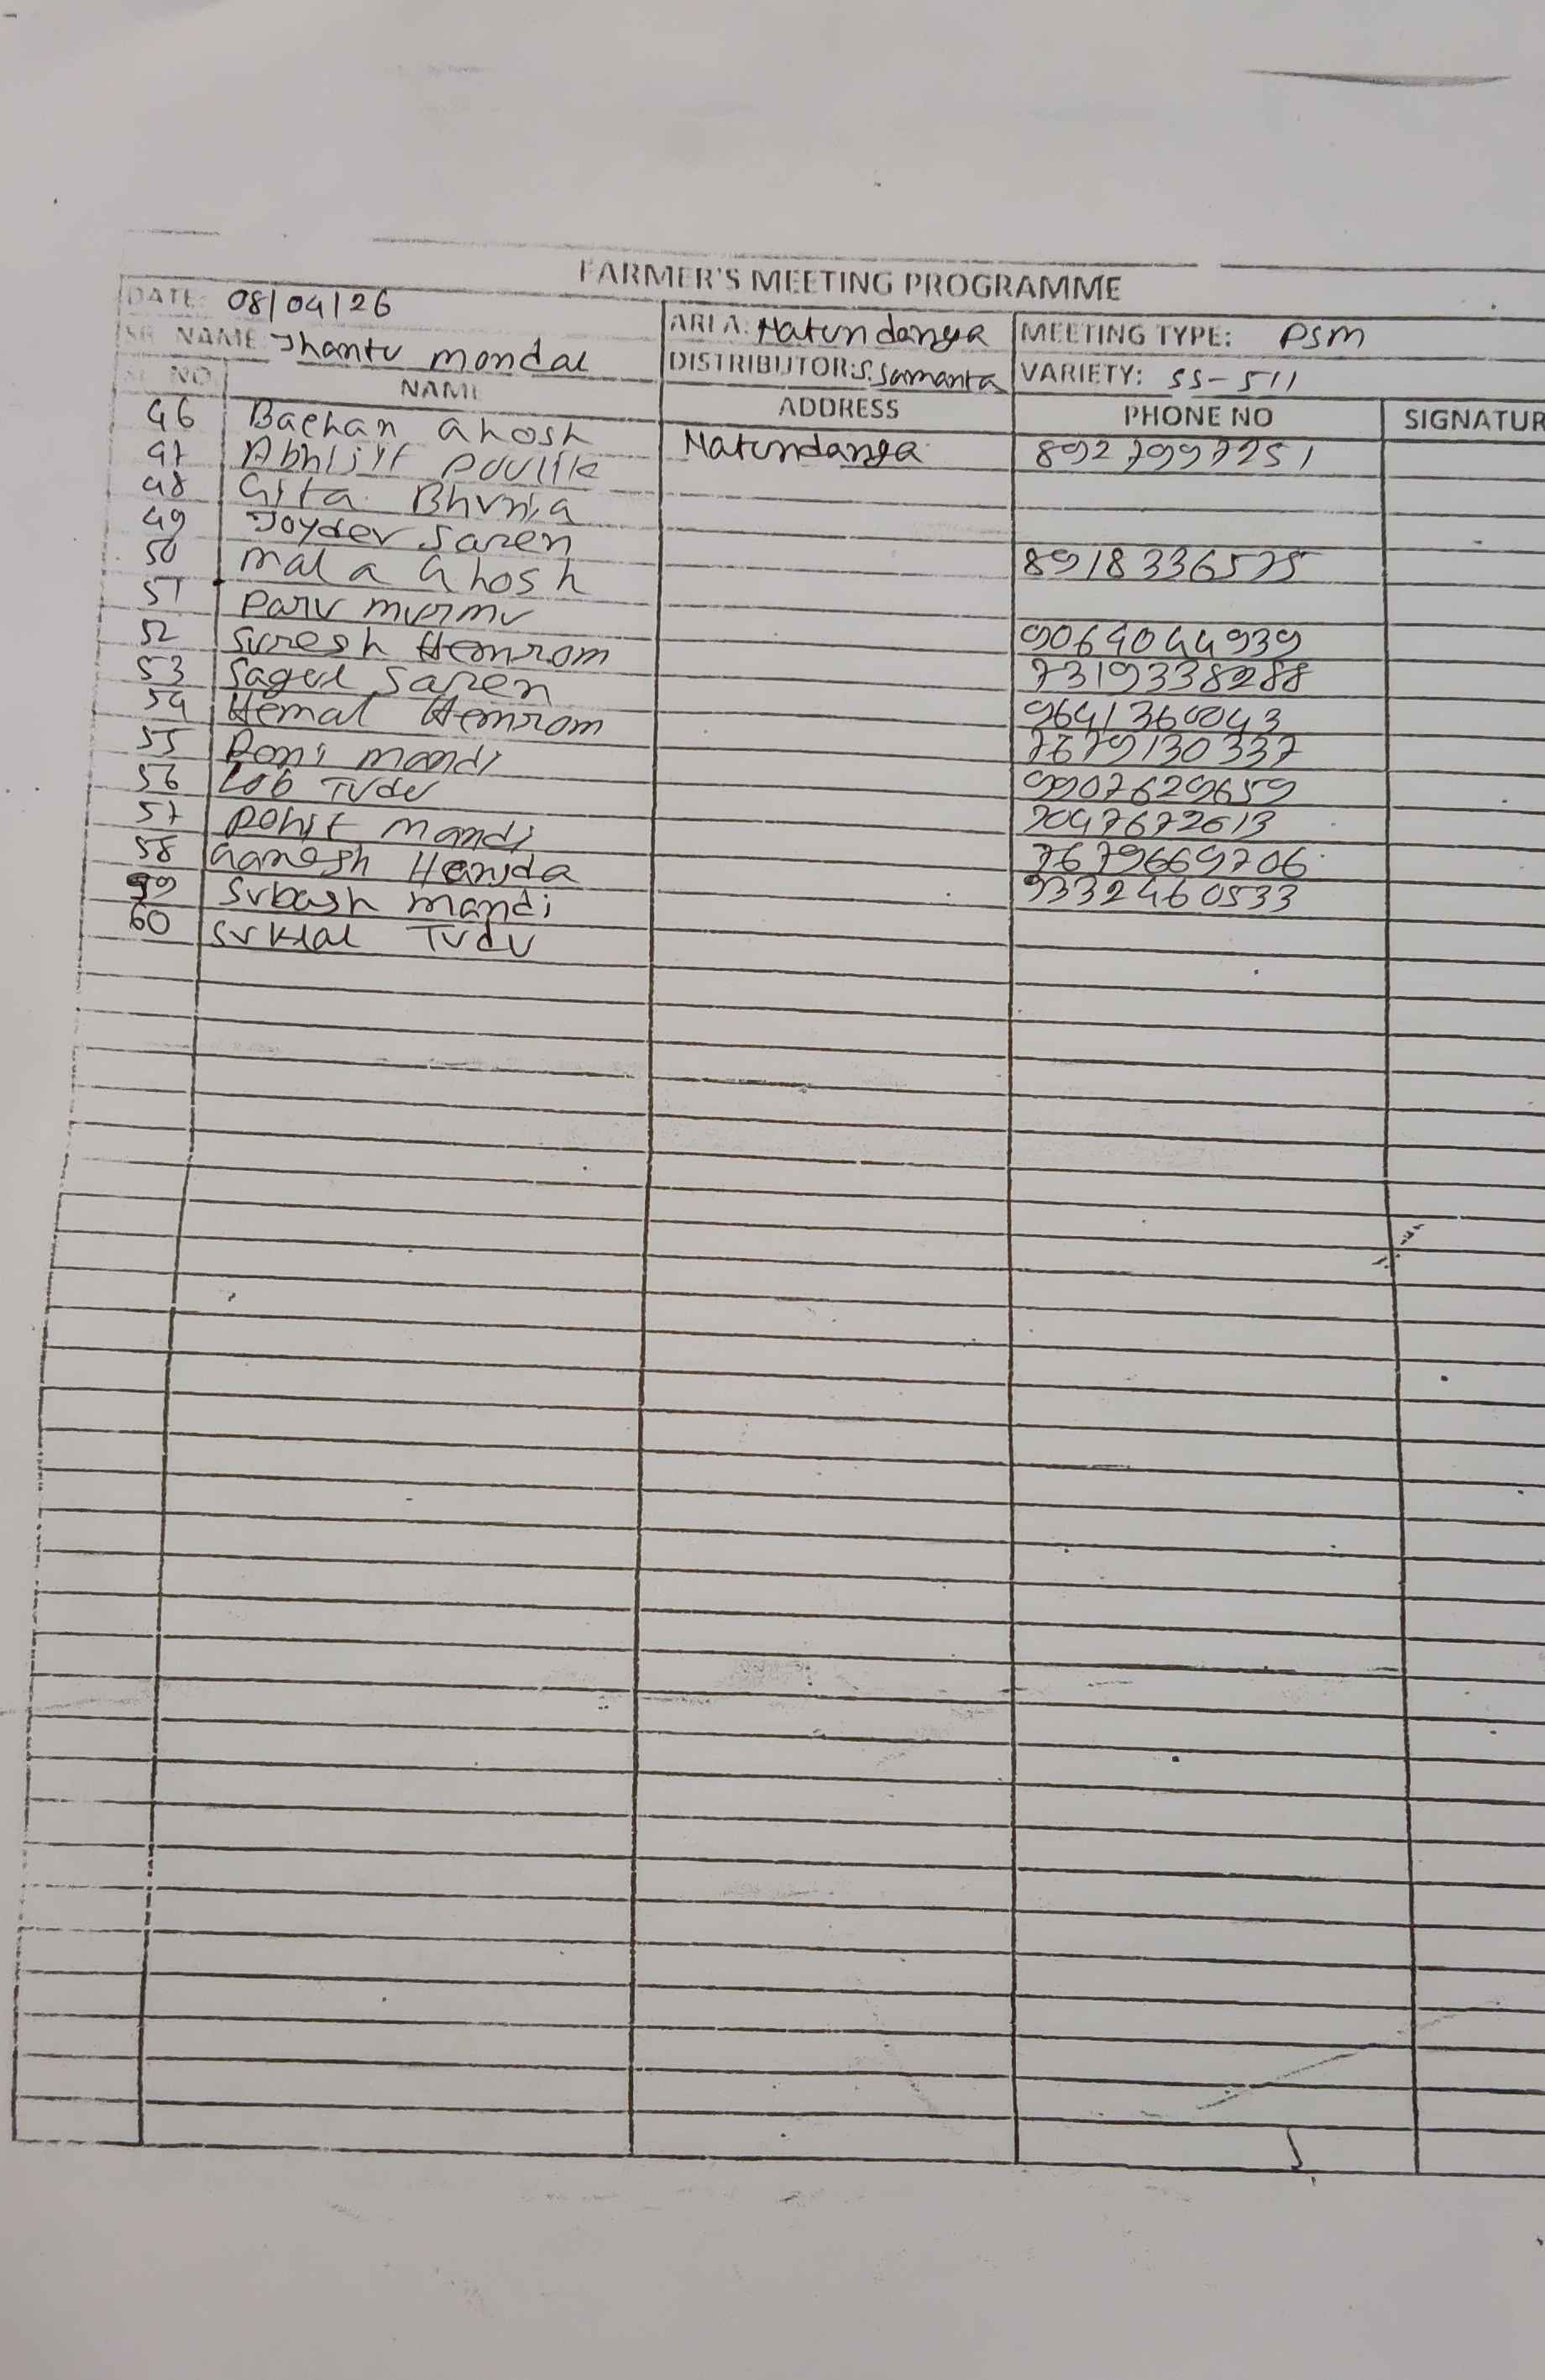 FARMER'S MEETING PROGRAMME
DATE: 08/04/26 AREA: Natundanga MEETING TYPE: PSM
SR. NAME Jhantu mondal DISTRIBUTOR: S. Samanta VARIETY: SS-511
SL NO NAME ADDRESS PHONE NO SIGNATUR
46 Bachan Ghosh Natundanga 8927997251
47 Abhijit Poulik
48 Gita Bhunia
49 Joydev Saren 8918336575
50 mala Ghosh
51 Paru murmu 9064044939
52 Suresh Hemrom 7319338288
53 Saged Saren
54 Hemal Hemrom 7679130337
55 Roni mandi 9907629659
56 Lob Tudu 7047672613
57 Rohit mandi 7679669706
58 Ganesh 9332460533
59 Subash mandi
60 Suklal Tudu